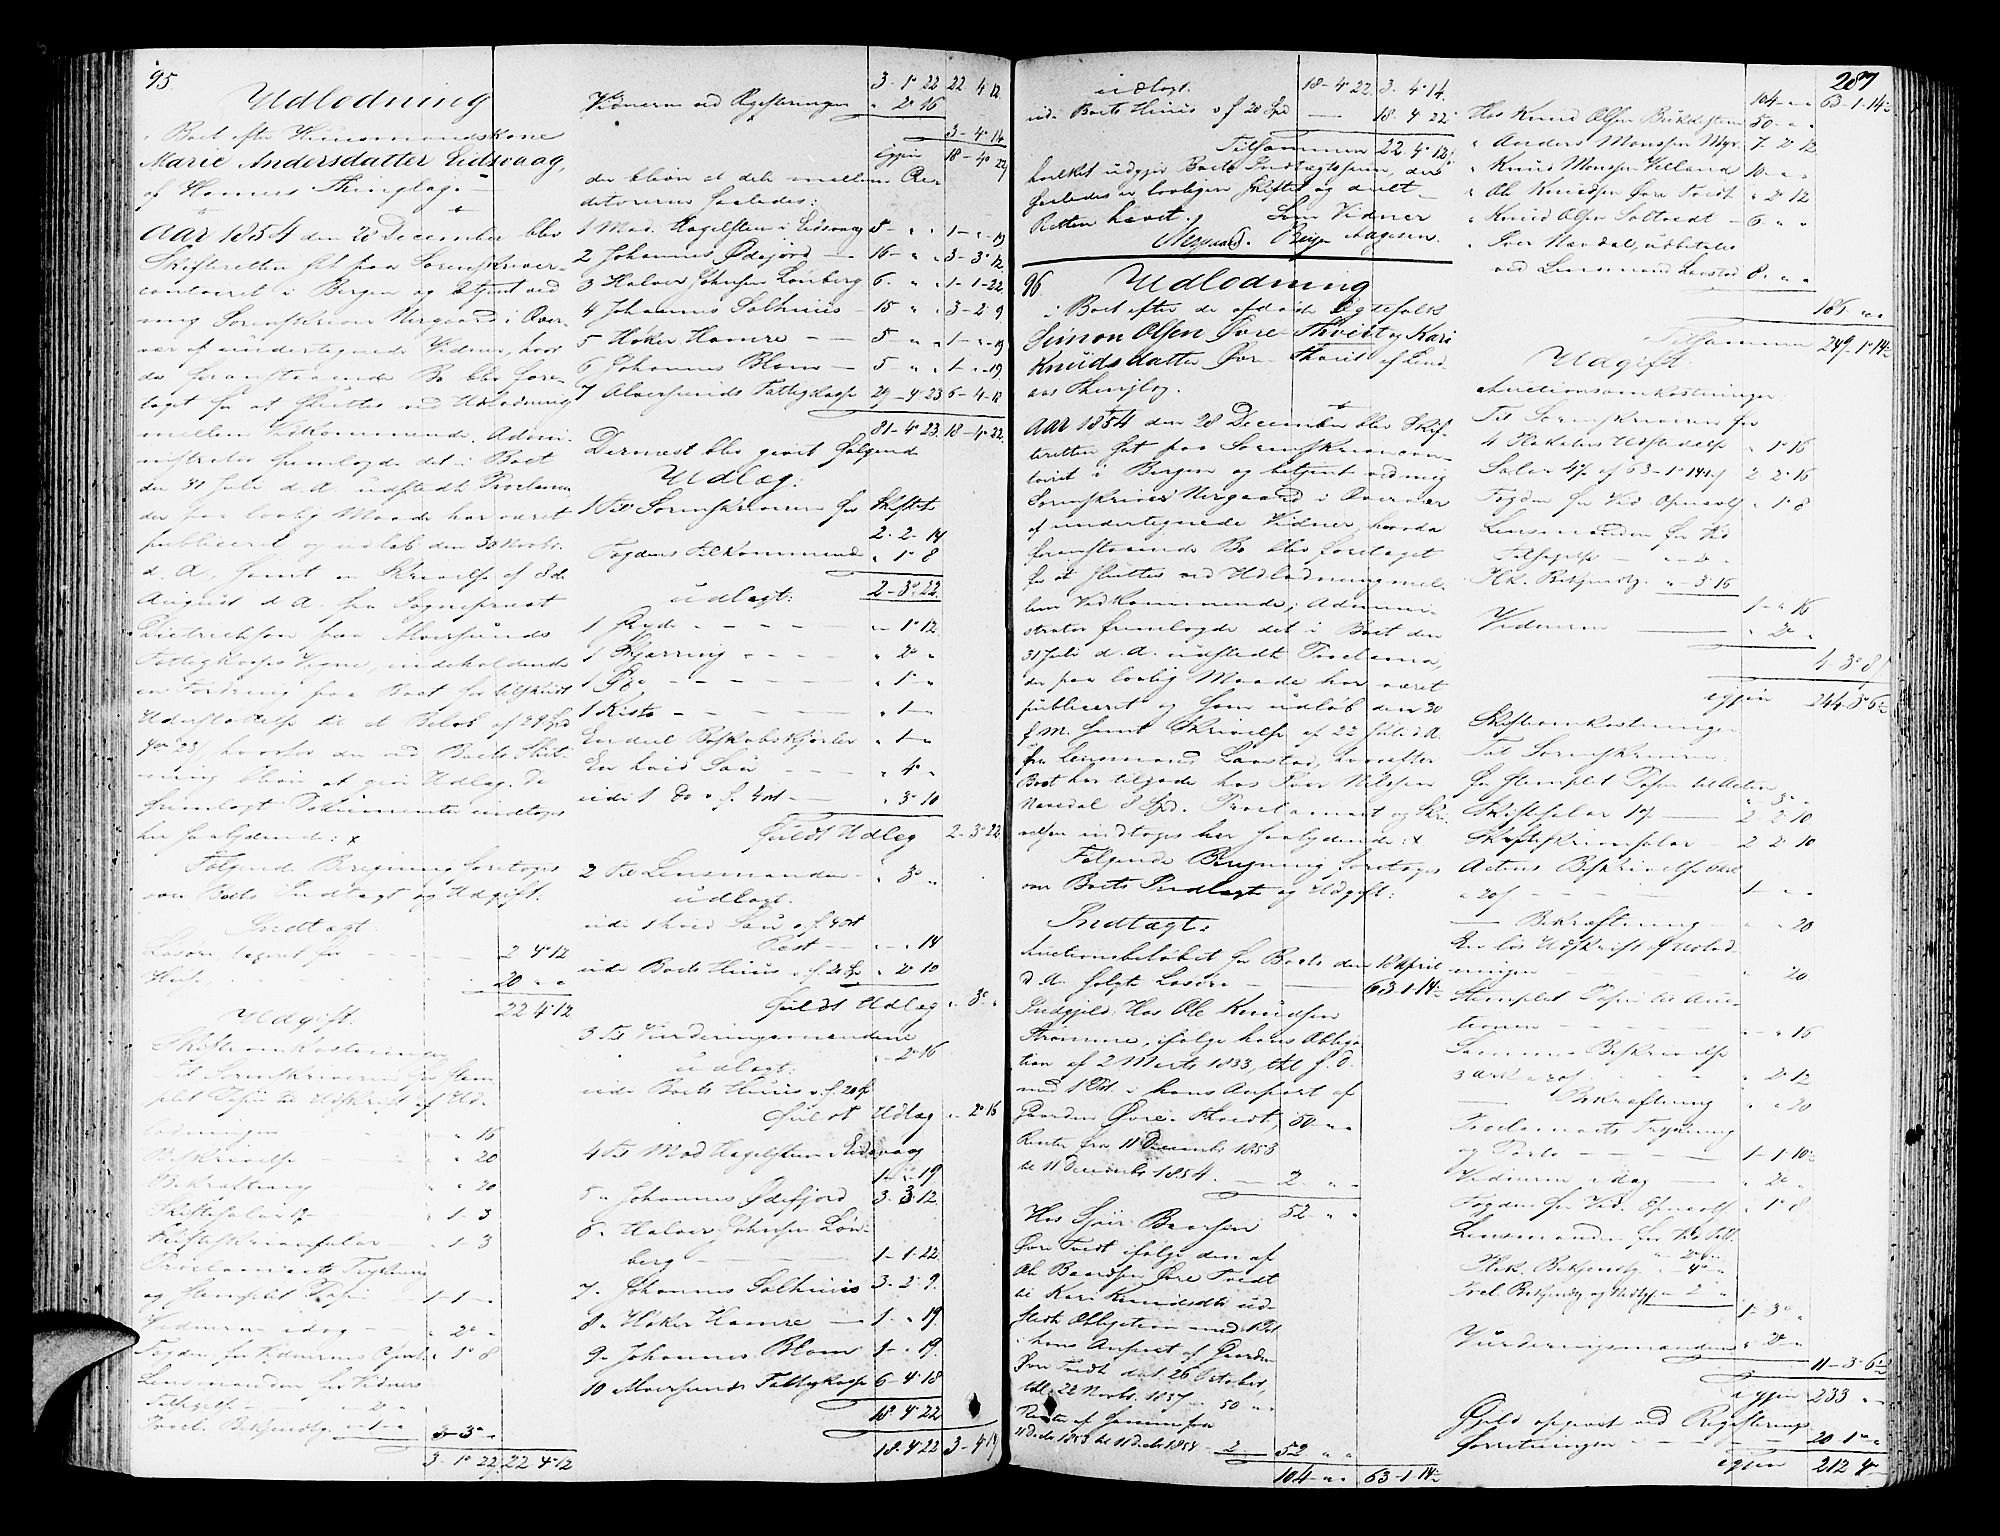 95.
Udlodning
i Boet efter Huusmandskone
Marie Andersdatter Eidsvaag,
af Hammers Thinglag.
Aar 1854 den 28 December blev
Skifteretten sat paa Sorenskriver-
contoiret i Bergen og betjent ved
mig Sorenskriver Nergaard i Over-
vær af undertegnede Vidner, hvor
da foranstaaende Bo blev fore-
taget for at sluttes ved Udlodning
mellem Vedkommende. Admi-
nistrator fremlagde det i Boet
den 31 Juli d. A. udstedte Proclama
der paa lovlig Maade har været
publiceret og udløb den 30 Novbr.
d. A., samt en Skrivelse af 8de
August d. A. fra Sogneprest
Dietrichson paa Alversunds
Fattigkasses Vegne, indeholdende
en Fordring paa Boet for tilskudt
Understøttelse til et Beløb af 29 Spd
4 ort 23 s, hvorfor der ved Boets Slut-
ning bliver at give Udlæg. De
fremlagte Dokumenter indtages
her saalydende: x
Følgende Beregning foretoges
over Boets Indtægt og Udgift.
Indtægt:
Løsøre taxeret for - - 2 4 12
Huse - - 20 " "
22 4 12
Udgift:
Skifteomkostninger
Til Sorenskriveren for stem
plet Papir til Udskrift af Ud-
lodningen - " " 16
Beskrivelse - " " 20
Bekræftning - " " 20
Skiftesalær - " 1 - 3
Skifteskriversalær - " 1 - 3
Proclamaets Trykning
og stemplet Papir - 1 - 1 - "
Vidnerne idag - " 2 "
Fogden for Vidnernes Opnævnelse " 1 8
Lensmanden for Vidners
Tilsigelse - " 2 "
Procl. Bekjendtg. 1 - " 3 - 3 "
3 1 22 22 4 12
3. 1 22 22 4 12
Vidnerne ved Registeringen " 2 16
3 - 4 14
igjen 18 - 4 22
der bliver at dele mellem Cre-
ditorerne saaledes:
1 Mad. Hagelsteen i Eidsvaag 5 - " " 1 - " - 19
2 Johannes Ødefjord - 16 - " " 3 - 3 12
3 Halvor Johnsen Lönberg 6 - " " 1 - 1 - 22
4 Johannes Solhuus - 15 " " 3 - 2 9
5 Høker Hamre - - 5 " " 1 - " - 19
6 Johannes Blom - 5 " " 1 - " - 19
7 Alversunds Fattigkasse 29 - 4 23 6 - 4 - 18
81 - 4 23 18 - 4 22
Dernæst blev givet følgende
Udlæg:
1 Til Sorenskriveren for Skiftet
2 - 2 - 14
Fogdens tilkommende " 1 8
2 - 3 22
udlagt:
1 Gryde - - - " 1 12
1 Skjørring - - - " 2 "
1 Øxe - - - " 1 "
1 Kiste - - - " 1 - "
En hvid Sau - - " 4 "
udi 1 Do v. f. 4 ort - - " 3 10
fuldt Udlæg 2 - 3 22
2 Til Lensmanden - " 3 "
udlagt:
udi 1 hvid Sau v f. 4 ort
Rest - - " " 14
udi Boets Huus v. f. 20 Sp " 2 10
fuldt Udlæg " 3 "
3 Til Vurderingsmændene
" - 2 16
udlagt:
udi Boets Huus v. f. 20 Sp
fuldt Udlæg " 2 16
4 Til Mad Hagelsteen Eidsvaag
1 - " 19
5 " Johannes Ødefjord 3 - 3 12
6 " Halvor Johnsen Lön-
berg - - 1 - 1 - 22
7 " Johannes Solhuus 3 - 2 9
8 " Høker Hamre - 1 - " 19
9 " Johannes Blom 1 - " 19
10 " Alversunds Fattigkasse 6 - 4 18
18 4 22
18 4 22 3 - 4 14
udlagt. 18 - 4 22 3 4 14
udi Boets Huus v f 20 Spd - 18 4 22
Tilsammen 22 4 12
hvilket udgjør Boets Indtægtssum, der
saaledes er lovligen skiftet og deelt -
Retten hævet. Som Vidner
Nergaard. Børge Aagesen.
96. Udlodning
i Boet efter de afdøde Egtefolk
Simon Olsen Øvre Thveit og Kari
Knudsdatter Øvre Thveit af Lind-
aas Thinglag.
Aar 1854 den 28 December blev Skif-
teretten sat paa Sorenskrivercon-
toiret i Bergen og betjent ved mig
Sorenskriver Nergaard i Overvær
af undertegnede Vidner, hvor da
foranstaaende Bo blev foretaget
for at sluttes ved Udlodning mel-
lem Vedkommende; Admini-
strator fremlagde det i Boet den
31 Juli d. A. udstedte Proclama,
der paa lovlig Maade har været
publiceret og som udløb den 30
f. M. samt Skrivelse af 22 Juli d. A.
fra Lensmand Laastad, hvorefter
Boet har tilgode hos Iver Nilssen
Navedal 8 Spd. Proclamaet og Skri-
velsen indtages her saalydende: x
Følgende Beregning foretoges
over Boets Indtægt og Udgift:
Indtægt:
Auctionsbeløbet for Boets den 18 April
d. A. solgte Løsøre - 63 1 14
Indgjeld: Hos Ole Knudsen
Strømme, ifølge hans Obliga-
tion af 2 Marts 1833, thl. s. D.
med 1 Pr. i hans Anpart af
Gaarden Øvre Thveidt, 50 " "
Renter fra 11 December 1853
til 11 December 1854. - 2 " "
52 " "
Hos Sjur Baarsen
Øvre Tvedt ifølge den af
Ole Baardsen Øvre Tvedt
til Kari Knudsdtr ud-
stedt Obligation med 1 Pr
i hans Anpart af Gaarden
Øvre Tvedt dat 26 October,
thl. 22 Novbr. 1837 " 50 " "
Renter af samme fra
11 Decbr 1853 til 11 Decbr 1854 - 2 52 " "
104 " " 63 - 1 14
287
104 " " 63 - 1 - 14
Hos Knud Olsen Birkelsteen 50 " "
" Anders Monssen Myr. 7 2 12
" Knud Monssen Velland 10 " "
" Ole Knudsen Øvre Tvedt " 2 12
" Knud Olsen Soltvedt - 6 " "
" Iver Navdal, udbetales
ved Lensmand Laastad 8 " "
186 " "
Tilsammen 249 1 14
Udgift:
Auctionsomkostninger:
Til Sorenskriveren for
4 Plakaters Udstedelse " 1 16
Salær 4 % af 63 - 1 14 s 2 2 16
Fogden for Vid. Opnævnelse " 1 8
Lensmanden for Vid
Tilsigelse - " 2 "
Plk. Bekjendtg. " 3 16
1 - " 16
Vidnerne - - " 2 "
4 3 8
igjen 244 3 6
Skifteomkostninger
Til Sorenskriveren:
for stemplet Papir til Acten
" 3 "
Skiftesalær 1 % - 2 2 10
Skifteskriversalær - 2 2 10
Actens Beskrivelse
1 - " "
Bekræftning - " " 20
En lös Udskrift af Udlod-
ningen - - " " 20
Stemplet Papir til Auc-
tionen - - " " 16
Sammes Beskrivelse
3 Ark a 20 s - " 2 12
Bekræftning " " 20
Proclamaets Trykning
og Porto - - 1 - 1 - 10
Vidnerne idag - - " 2 "
Fogden for Vid. Opnævnelse " 1 8
Lensmanden for Vid. Till.
" 2 "
Plk. Bekjendtg. " 4 "
Procl. Bekjendtg og Vidtg - 2 "
1 3 "
Vurderingsmændene " 2 "
11 - 3 6
igjen 233 " "
Gjeld opgivet ved Registerings-
forretningen - - 20 1 "
igjen 212 4 "